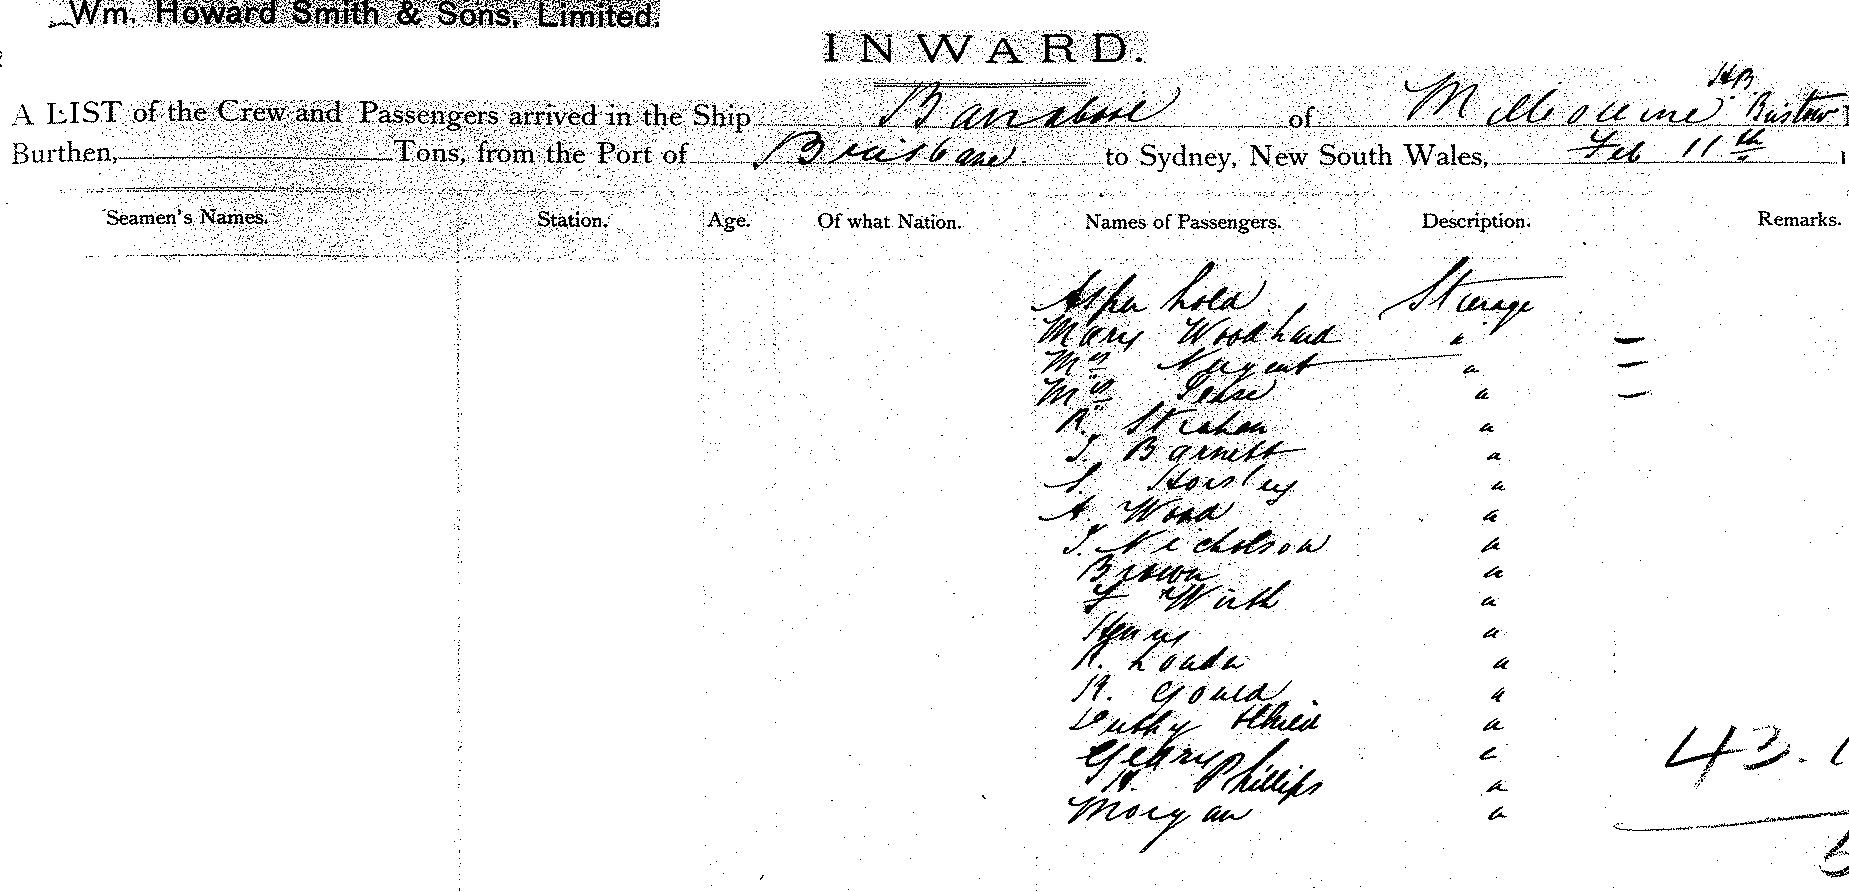 Wm. Howard Smith & Sons, Limited.
INWARD.
H.B.
A LIST of the Crew and Passengers arrived in the Ship Barrabool of Melbourne Bristow
Burthen, Tons, from the Port of Brisbane to Sydney, New South Wales, Feb 11th
Seamen's Names. Station. Age. Of what Nation. Names of Passengers. Description. Remarks.
Steerage
Mary Woodhard "
Mrs Nugent "
"
R. Strahan "
T. Barnett "
S. Horsley "
A. Wood "
T. Nicholson "
Brown "
F Wirth "
Henry "
R. "
R. Gould "
"
Geary "
H. Phillips "
Morgan "
43.